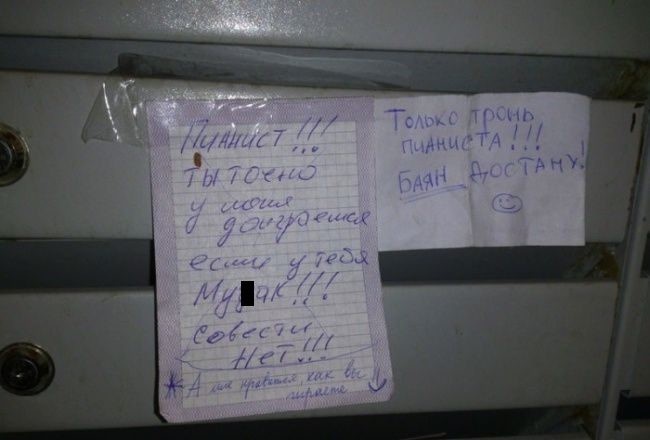 Пианист!!!
ты точно
у меня
доиграешся
если у тебя
Му ак!!!
совести
Нет!!!
* А мне нравится, как вы
играете
Только тронь
пианиста!!!
Баян достану!